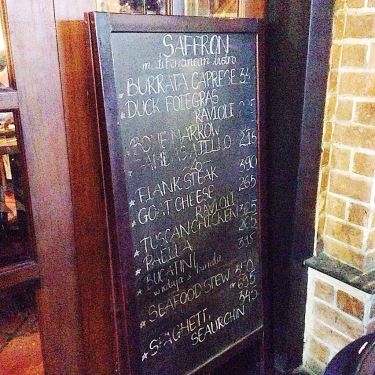 SAFFRON
mediterranean bistro
* BURRATA CAPRESE
* DUCK FOIE GRAS
RAVIOLI
* BONE MARROW
* GAMBAS AJILLO 215
* FLANK STEAK 390
* GOAT CHEESE 265
RAVIOLI
* TUSCAN CHICKEN 325
* PAELLA
* BUCATINI 395
* SEAFOOD STEW
* 695
* SPAGHETTI 345
SEAURCHIN